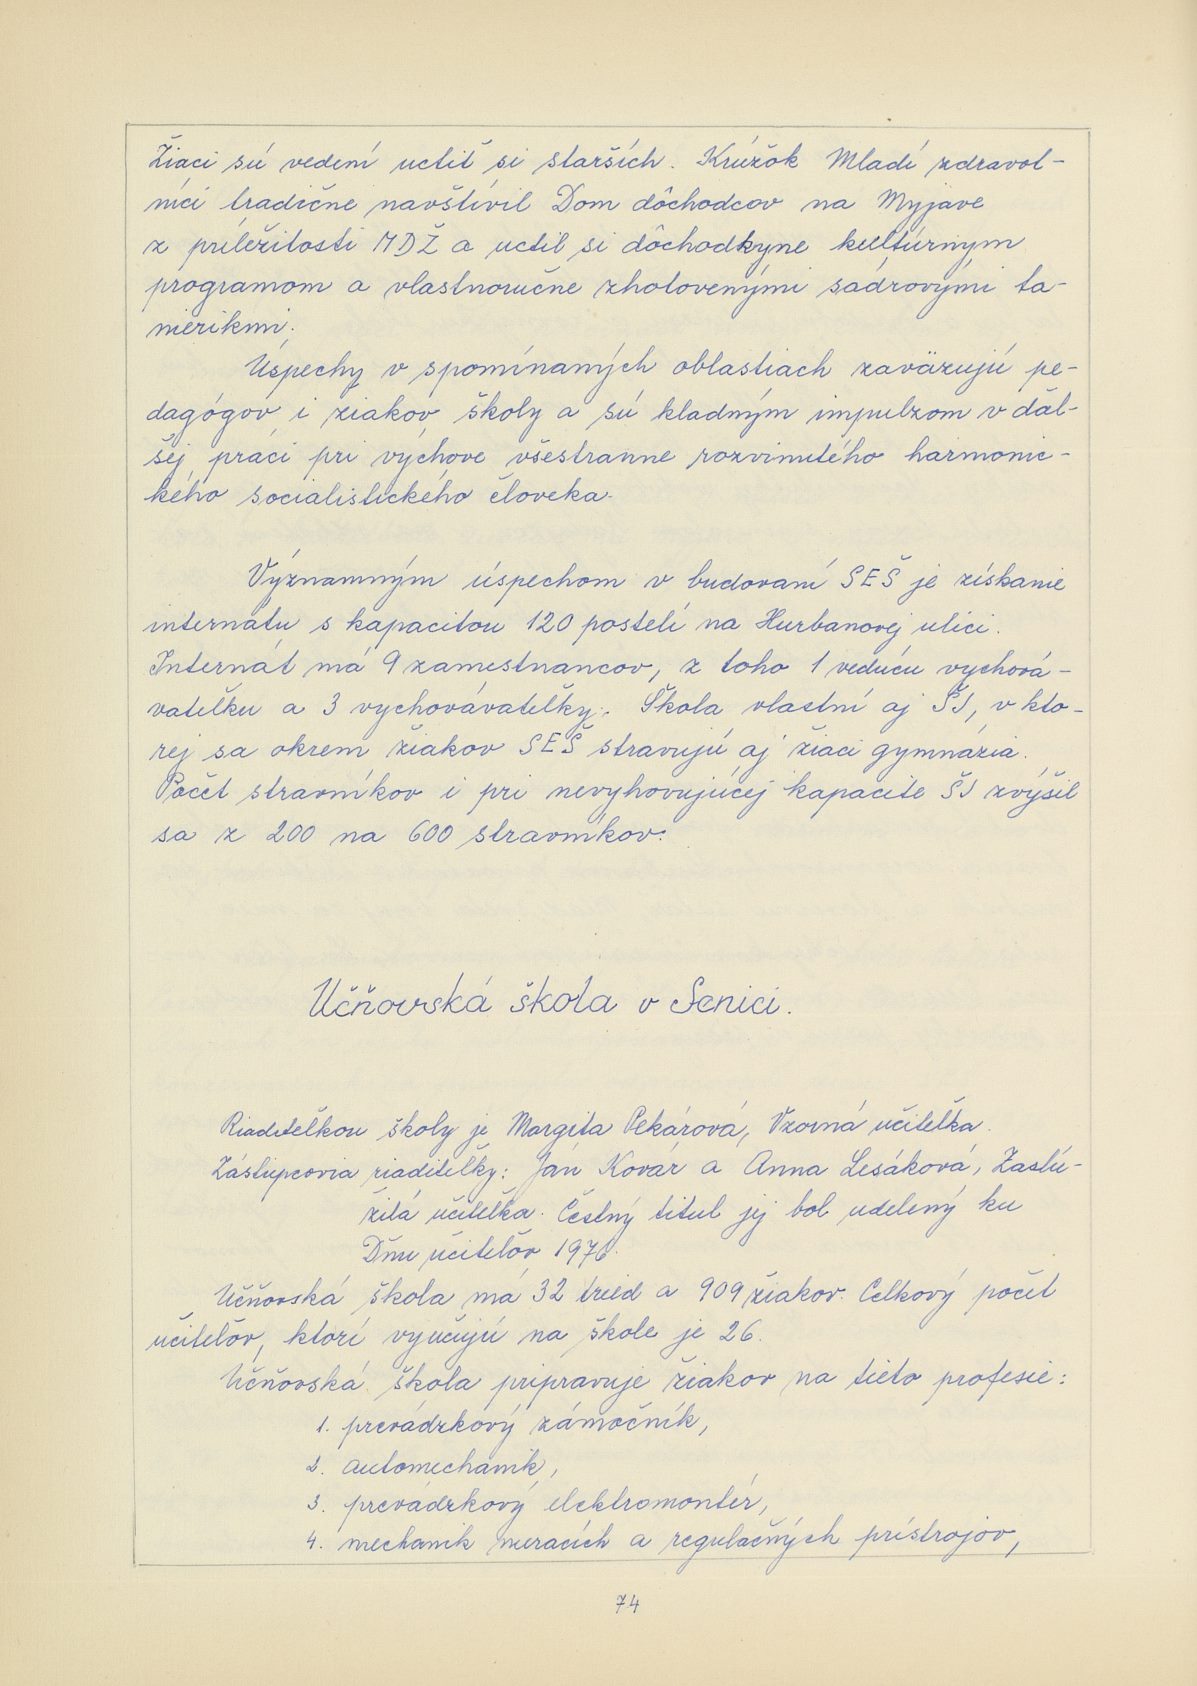 Žiaci sú vedení uctiť si starších. Krúžok Mladí zdravot-
níci tradične navštívil Dom dôchodcov na Myjave
z príležitosti MDŽ a uctil si dôchodkyne kultúrnym
programom a vlastnoručne zhotovenými sádrovými ta-
nierikmi.
Úspechy v spomínaných oblastiach zaväzujú pe-
dagógov i žiakov školy a sú kladným impulzom v ďal-
šej práci pri výchove všestranne rozvinutého harmonic-
kého socialistického človeka.
Významným úspechom v budovaní SEŠ je získanie
internátu s kapacitou 120 postelí na Hurbanovej ulici.
Internát má 9 zamestnancov, z toho 1 vedúcu vychová-
vateľku a 3 vychovávateľky. Škola vlastní aj ŠJ, v kto-
rej sa okrem žiakov SEŠ stravujú aj žiaci gymnázia.
Počet stravníkov i pri nevyhovujúcej kapacite ŠJ zvýšil
sa z 200 na 600 stravníkov.
Učňovská škola v Senici.
Riaditeľkou školy je Margita Pekárová, Vzorná učiteľka.
Zástupcovia riaditeľky: Ján Kovár a Anna Lesáková, Zaslú-
žilá učiteľka. Čestný titul jej bol udelený ku
Dňu učiteľov 1976.
Učňovská škola má 32 tried a 909 žiakov. Celkový počet
učiteľov, ktorí vyučujú na škole je 26.
Učňovská škola pripravuje žiakov na tieto profesie:
1. prevádzkový zámočník,
2. automechanik,
3. prevádzkový elektromontér,
4. mechanik meracích a regulačných prístrojov,
74